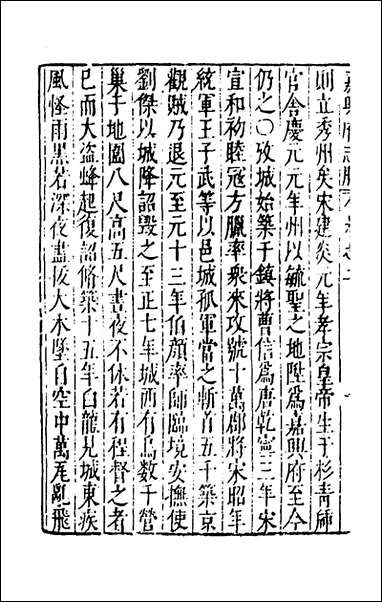 則立秀州矣宋建炎元年孝宗皇帝生于杉青牐
官舍慶元元年州以毓聖之地陞爲嘉興府至今
仍之〇攷城始築于鎮將曹信爲唐乾寧三年宋
宣和初睦寇方臘率衆來攻號十萬郡將宋昭年
統軍王子武等以邑城孤軍當之斬首五千築京
觀賊乃退元至元十三年伯顔率師臨境安撫使
劉傑以城降詔毀之至正七年城西有烏數千營
巢于地圍八尺高五尺晝夜不休若有程督之者
已而大盜蜂起復詔脩築十五年白龍見城東疾
風怪雨黑若深夜盡拔大木墜自空中萬瓦亂飛